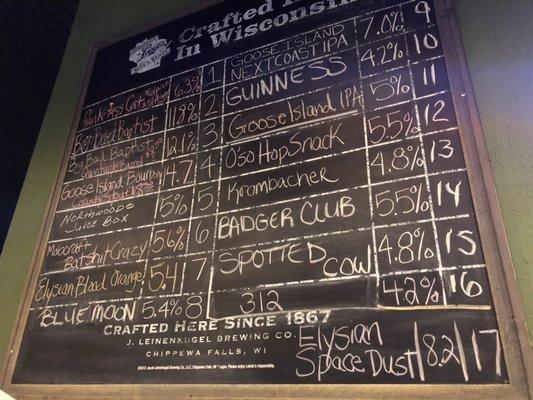 Crafted
In Wisconsin
6.3% 1
11.8% 2
Big Bad Baptist 12.1% 3
Goose Island Bourbon
County Stout 4.7 4
Northwoods
Juice Box 5% 5
BatShit Crazy 5.6% 6
Elysian Blood Orange 5.4 7
BLUE MOON 5.4% 8
GOOSE ISLAND
NEXTCOAST IPA 7.0% 9
GUINNESS 4.2% 10
Goose Island IPA 5% 11
O'so Hop Snack 5.5% 12
Krombacher 4.8% 13
BADGER CLUB 5.5% 14
SPOTTED COW 4.8% 15
312 4.2% 16
Elysian
Space Dust 8.2 17
CRAFTED HERE SINCE 1867
J. LEINENKUGEL BREWING CO.
CHIPPEWA FALLS, WI